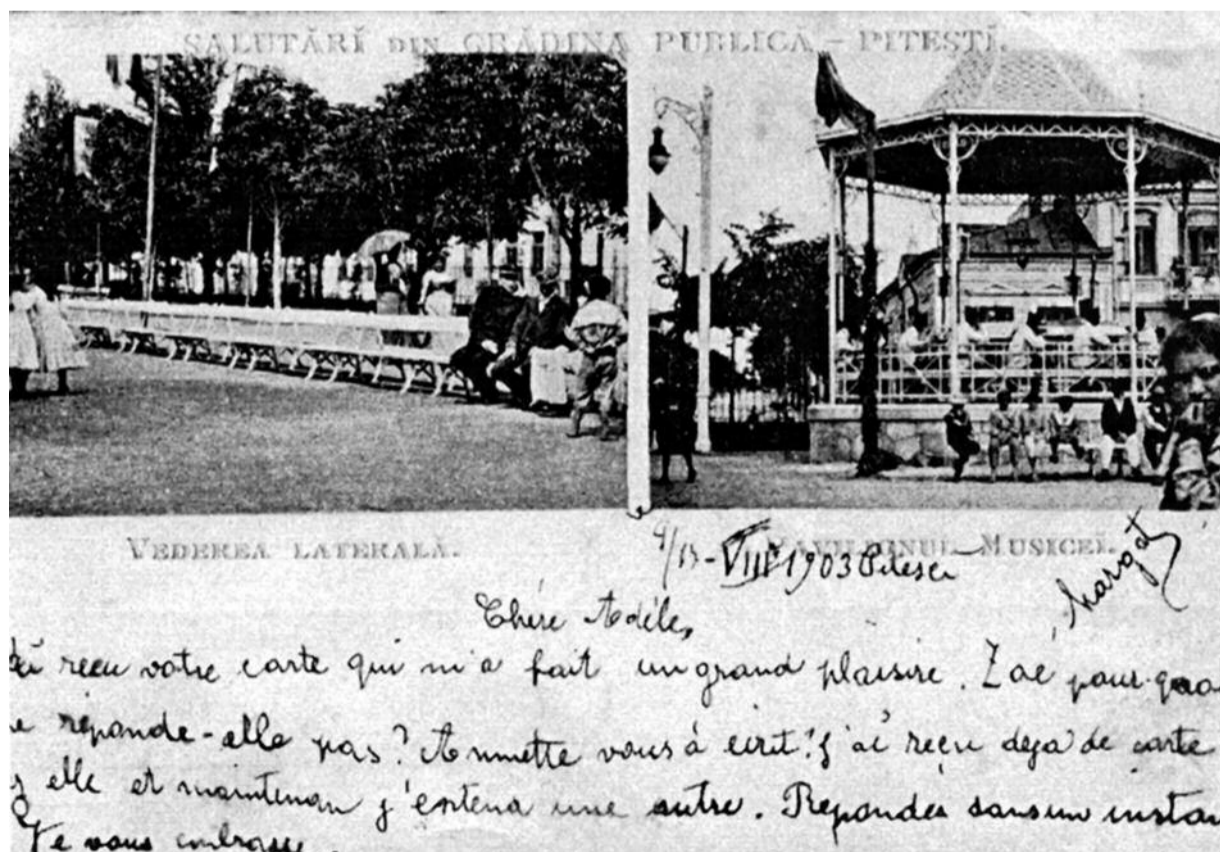 SALUTĂRĬ DIN GRĂDINA PUBLICA – PITEȘTĬ.
VEDEREA LATERALĂ.
PAVILIONUL MUSICEĬ.
VIII 1903 Pitesci
Margot
Chère Adèle,
reçu votre carte qui m'a fait un grand plaisire. Zoé pour-quoi
reponde-elle pas? Annette vous à ecrit? j'ai reçu deja de carte
elle et maintenan j' une autre. Repondez sans un instan
Je vous embrasse.